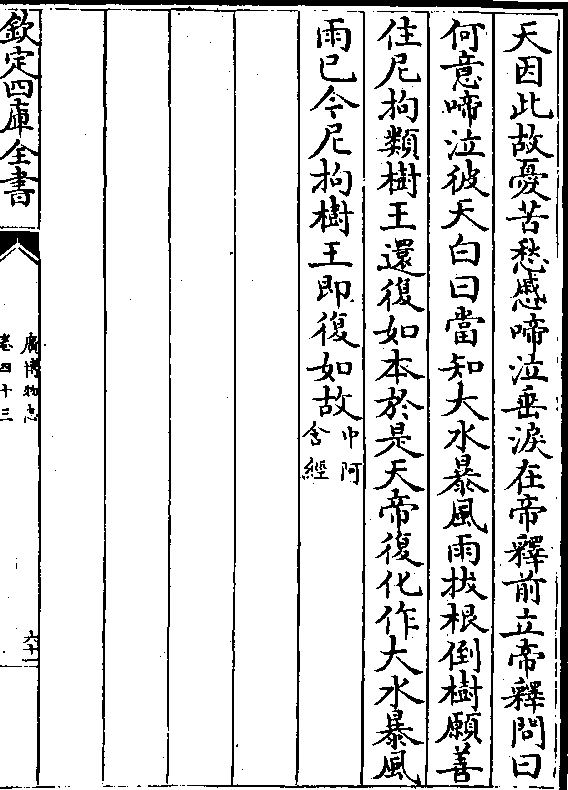 天因此故憂苦愁慼啼泣垂淚在帝釋前立帝釋問曰
何意啼泣彼天白曰當知大水暴風雨拔根倒樹願善
住尼拘類樹王還復如本於是天帝復化作大水暴風
雨已令尼拘樹王即復如故中阿含經
欽定四庫全書
廣博物志
卷四十三
六十一